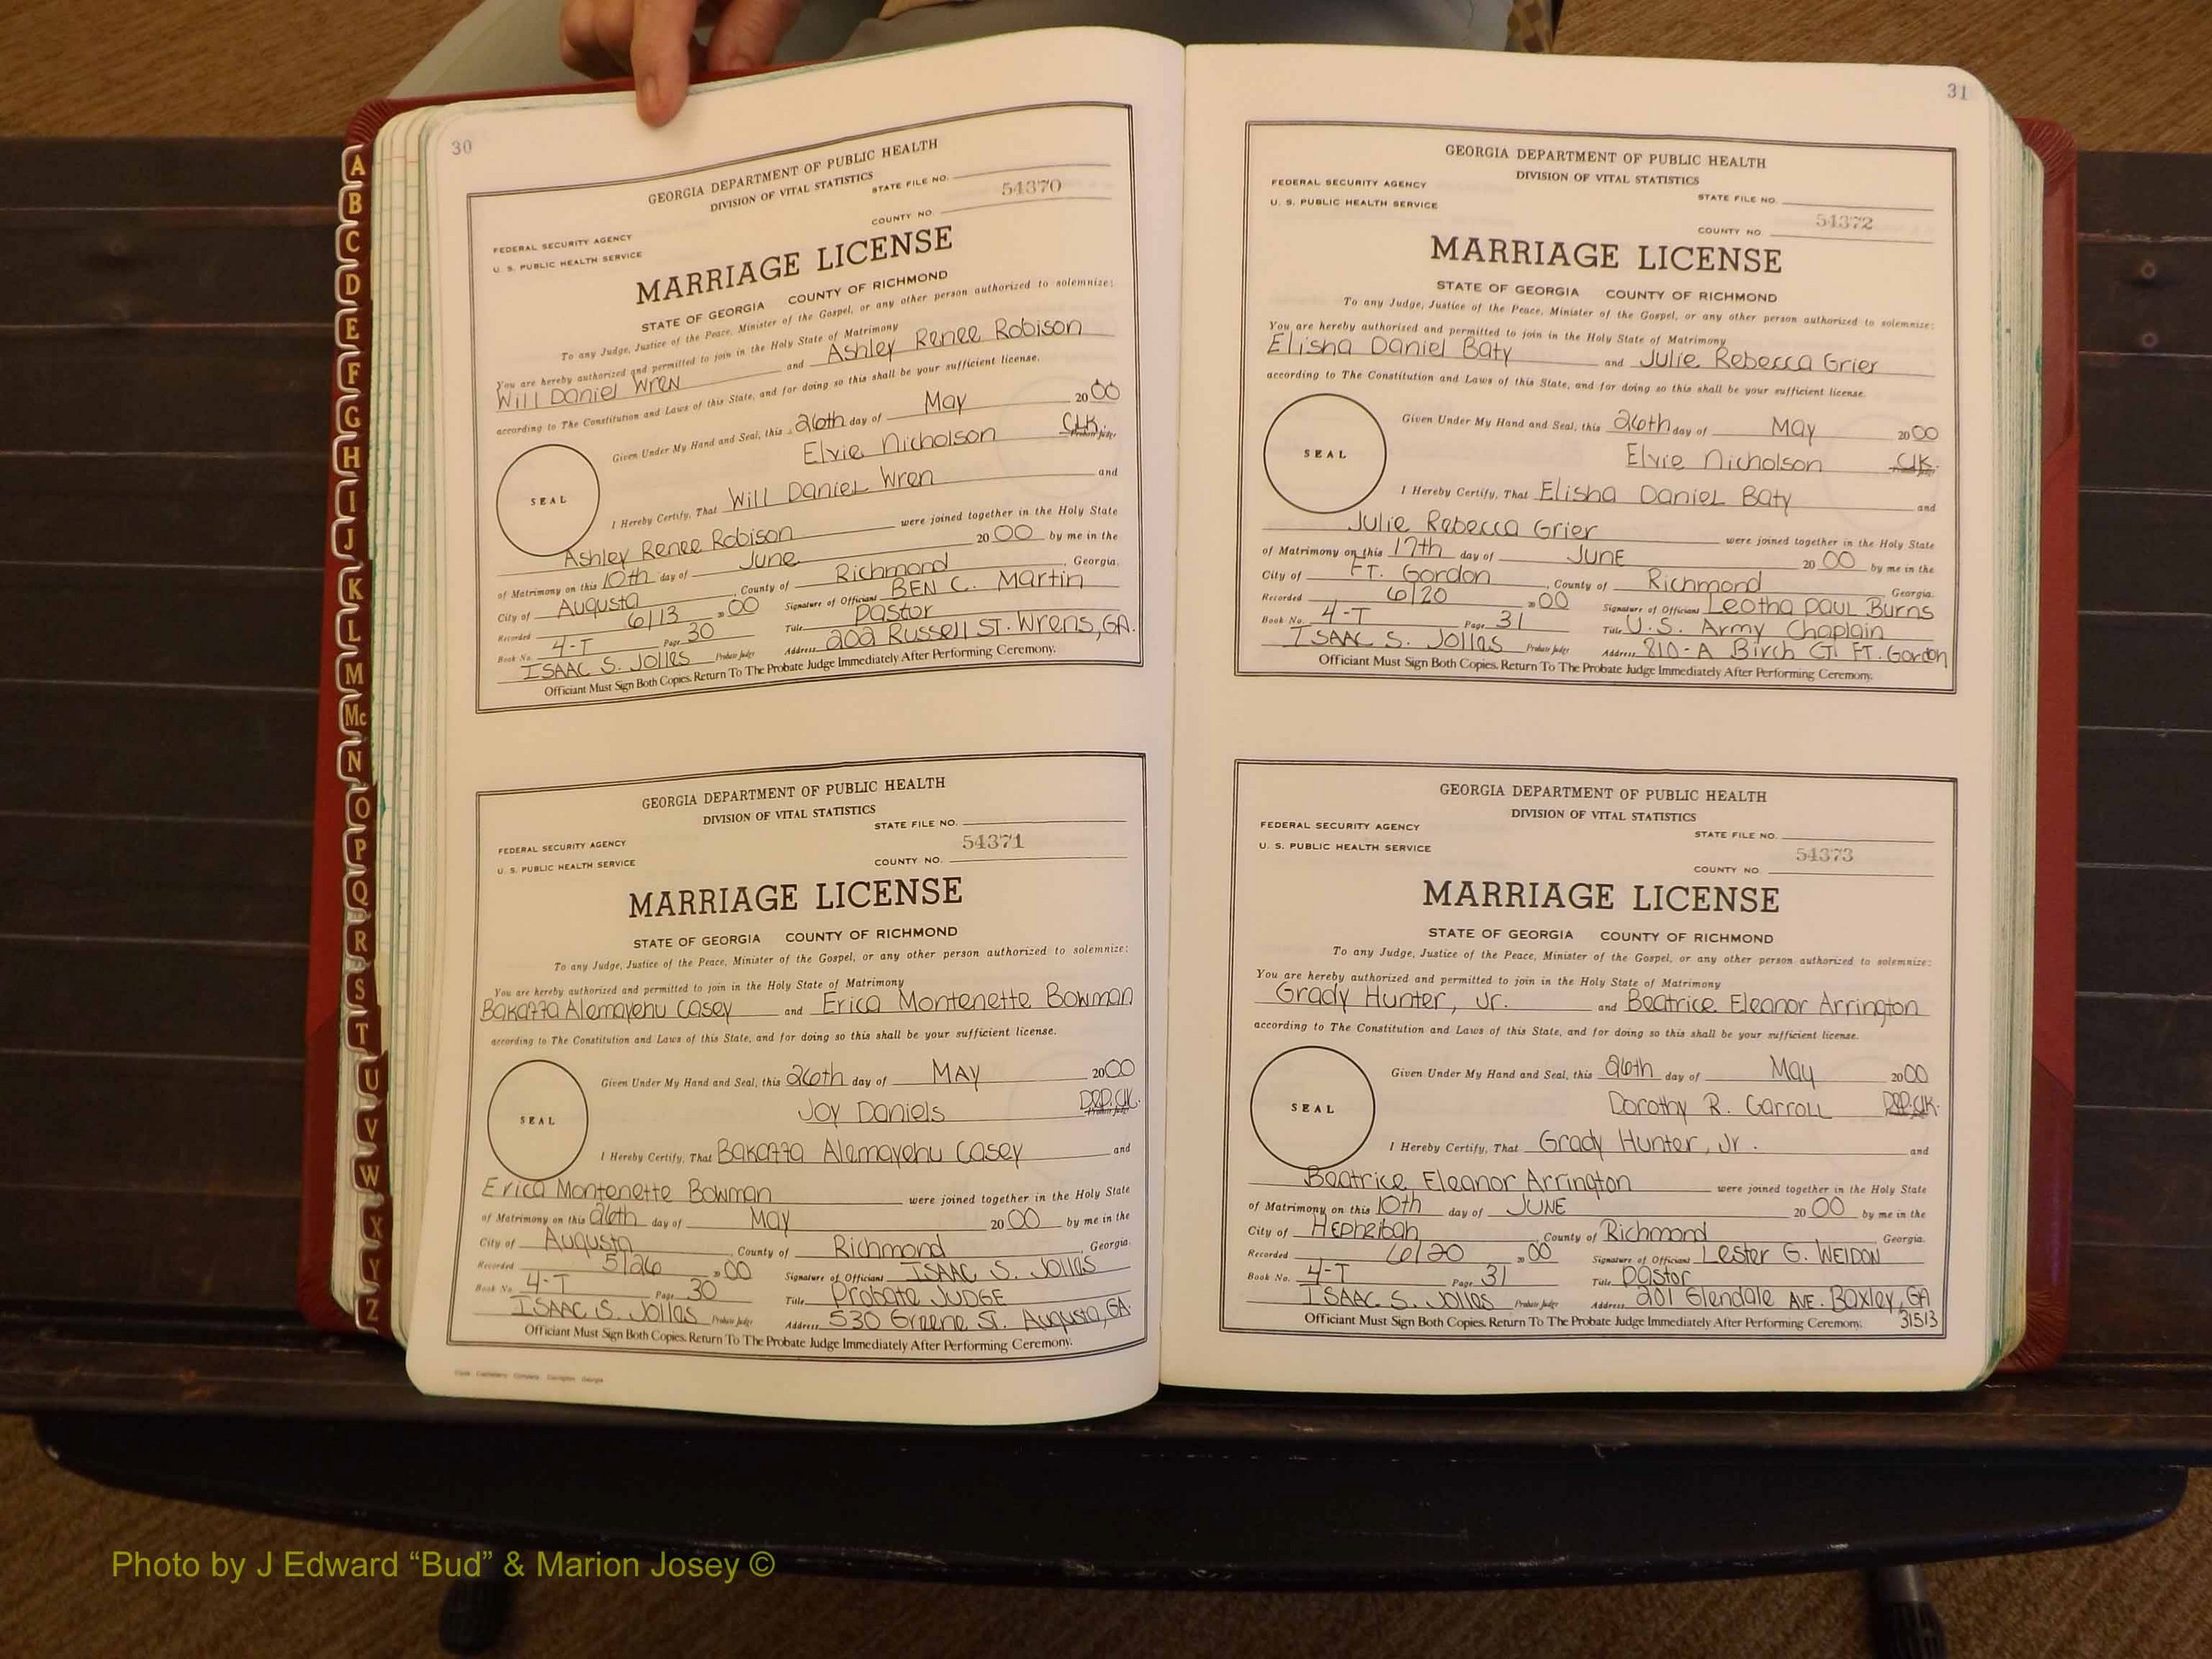 30
GEORGIA DEPARTMENT OF PUBLIC HEALTH
DIVISION OF VITAL STATISTICS
STATE FILE NO.
54370
COUNTY NO.
FEDERAL SECURITY AGENCY
U. S. PUBLIC HEALTH SERVICE
MARRIAGE LICENSE
STATE OF GEORGIA COUNTY OF RICHMOND
To any Judge, Justice of the Peace, Minister of the Gospel, or any other person authorized to solemnize:
You are hereby authorized and permitted to join in the Holy State of Matrimony
Will Daniel Wren and Ashley Renee Robison
according to The Constitution and Laws of this State, and for doing so this shall be your sufficient license.
Given Under My Hand and Seal, this 26th day of May 2000
Elvie Nicholson CLK. Probate Judge
SEAL
I Hereby Certify, That Will Daniel Wren and
Ashley Renee Robison were joined together in the Holy State
of Matrimony on this 10th day of June 2000 by me in the
City of Augusta, County of Richmond, Georgia.
Recorded 6/13 2000 Signature of Officiant BEN C. Martin
Book No. 4-T Page 30 Title Pastor
ISAAC S. Jolles Probate Judge Address 202 Russell ST. Wrens, GA.
Officiant Must Sign Both Copies. Return To The Probate Judge Immediately After Performing Ceremony.
GEORGIA DEPARTMENT OF PUBLIC HEALTH
DIVISION OF VITAL STATISTICS
STATE FILE NO.
54371
COUNTY NO.
FEDERAL SECURITY AGENCY
U. S. PUBLIC HEALTH SERVICE
MARRIAGE LICENSE
STATE OF GEORGIA COUNTY OF RICHMOND
To any Judge, Justice of the Peace, Minister of the Gospel, or any other person authorized to solemnize:
You are hereby authorized and permitted to join in the Holy State of Matrimony
Alemayehu Casey and Erica Montenette Bowman
according to The Constitution and Laws of this State, and for doing so this shall be your sufficient license.
Given Under My Hand and Seal, this 26th day of MAY 2000
Joy Daniels DEP. CLK. Probate Judge
SEAL
I Hereby Certify, That Alemayehu Casey and
Erica Montenette Bowman were joined together in the Holy State
of Matrimony on this 26th day of May 2000 by me in the
City of Augusta, County of Richmond, Georgia.
Recorded 5/26 2000 Signature of Officiant ISAAC S. Jolles
Book No. 4-T Page 30 Title Probate JUDGE
ISAAC S. Jolles Probate Judge Address 530 Greene St. Augusta, GA.
Officiant Must Sign Both Copies. Return To The Probate Judge Immediately After Performing Ceremony.
31
GEORGIA DEPARTMENT OF PUBLIC HEALTH
DIVISION OF VITAL STATISTICS
FEDERAL SECURITY AGENCY
U. S. PUBLIC HEALTH SERVICE
STATE FILE NO.
54372
COUNTY NO.
MARRIAGE LICENSE
STATE OF GEORGIA COUNTY OF RICHMOND
To any Judge, Justice of the Peace, Minister of the Gospel, or any other person authorized to solemnize:
You are hereby authorized and permitted to join in the Holy State of Matrimony
Elisha Daniel Baty and Julie Rebecca Grier
according to The Constitution and Laws of this State, and for doing so this shall be your sufficient license.
Given Under My Hand and Seal, this 26th day of May 2000
Elvie Nicholson CLK.
SEAL
I Hereby Certify, That Elisha Daniel Baty and
Julie Rebecca Grier were joined together in the Holy State
of Matrimony on this 17th day of JUNE 2000 by me in the
City of FT. Gordon, County of Richmond Georgia.
Recorded 6/20 2000 Signature of Officiant Leotha PAUL Burns
Book No. 4-T Page 31 Title U.S. Army Chaplain
ISAAC S. Jolles Probate Judge Address 810-A Birch CT. FT. Gordon
Officiant Must Sign Both Copies. Return To The Probate Judge Immediately After Performing Ceremony.
GEORGIA DEPARTMENT OF PUBLIC HEALTH
DIVISION OF VITAL STATISTICS
FEDERAL SECURITY AGENCY
U. S. PUBLIC HEALTH SERVICE
STATE FILE NO.
54373
COUNTY NO.
MARRIAGE LICENSE
STATE OF GEORGIA COUNTY OF RICHMOND
To any Judge, Justice of the Peace, Minister of the Gospel, or any other person authorized to solemnize:
You are hereby authorized and permitted to join in the Holy State of Matrimony
Grady Hunter, Jr. and Beatrice Eleanor Arrington
according to The Constitution and Laws of this State, and for doing so this shall be your sufficient license.
Given Under My Hand and Seal, this 26th day of May 2000
Dorothy R. Carroll DEP. CLK.
SEAL
I Hereby Certify, That Grady Hunter, Jr. and
Beatrice Eleanor Arrington were joined together in the Holy State
of Matrimony on this 10th day of JUNE 2000 by me in the
City of Hephzibah, County of Richmond Georgia.
Recorded 6/20 2000 Signature of Officiant Lester G. WELDON
Book No. 4-T Page 31 Title Pastor
ISAAC S. Jolles Probate Judge Address 201 Glendale AVE. Baxley, GA
Officiant Must Sign Both Copies. Return To The Probate Judge Immediately After Performing Ceremony. 31513
A
B
C
D
E
F
G
H
I
J
K
L
M
Mc
N
O
P
Q
R
S
T
U
V
W
X
Y
Z
Photo by J Edward “Bud” & Marion Josey ©